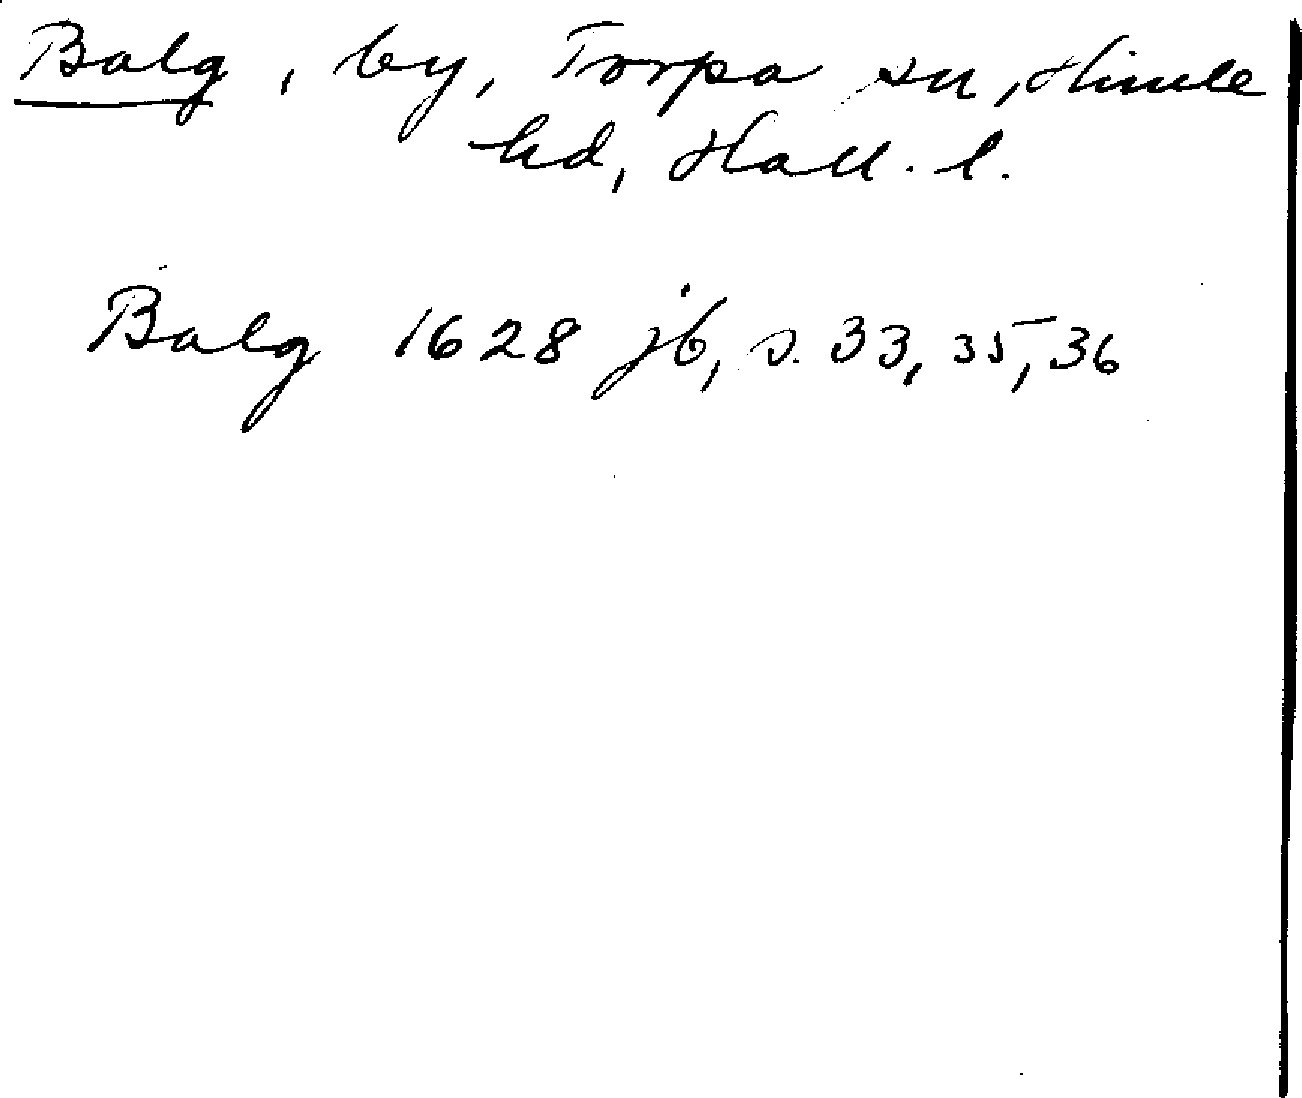 Balg, by, Torpa sn, Himle
hd, Hall. l.
Balg 1628 jb, s. 33, 35, 36